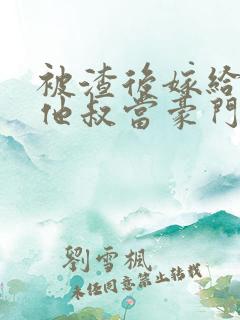 被渣後嫁給
他叔當豪門
劉雪楓
未經同意禁止轉載